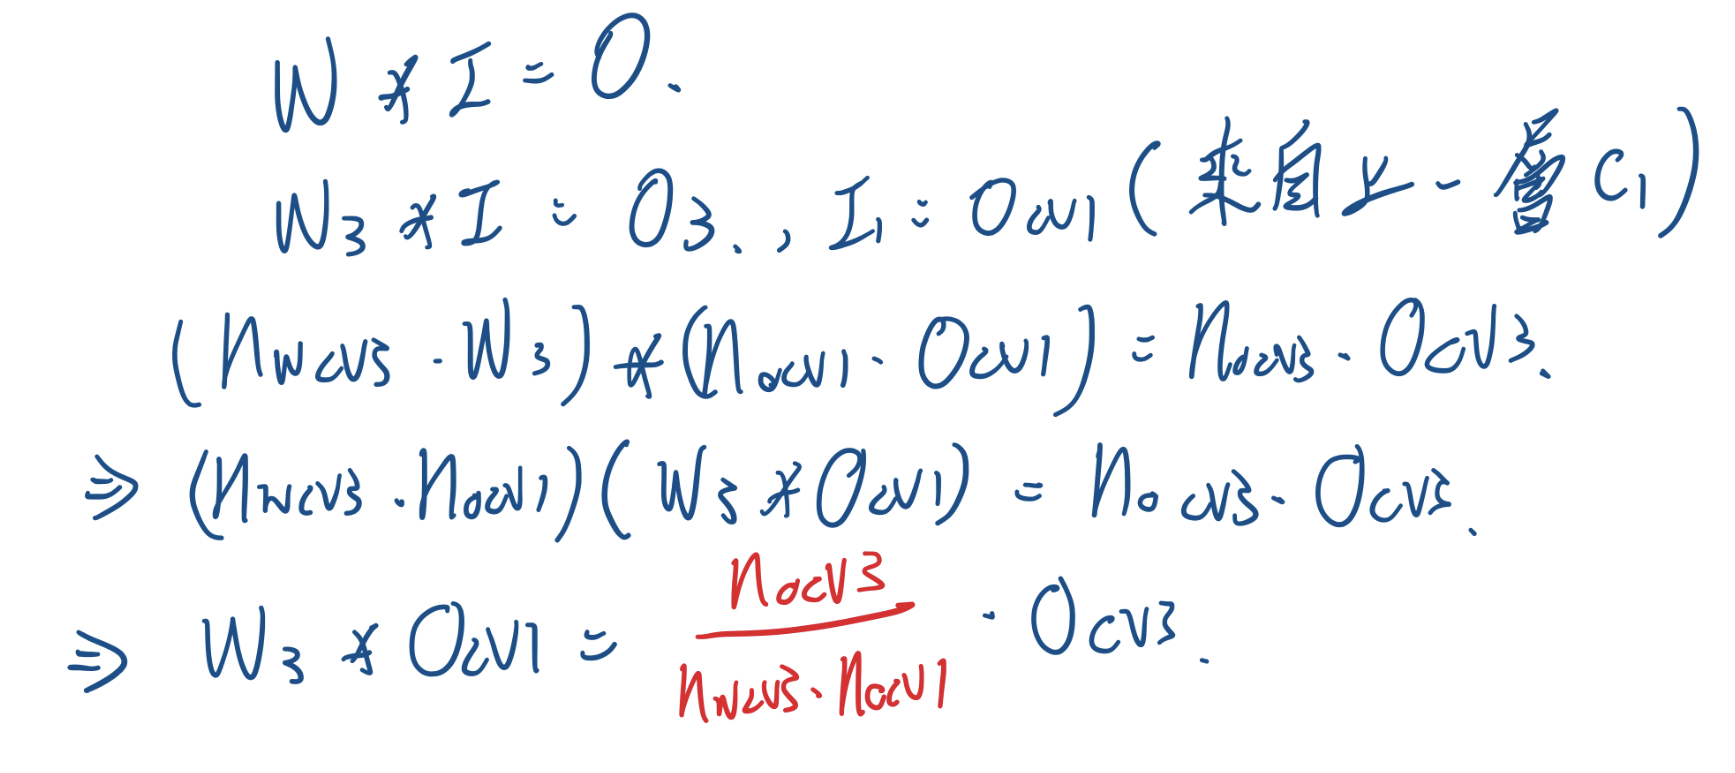 W * I = O.
W3 * I = O3. , I1 = Ocv1 (來自上一層 C1)
(nwcv3 · W3) * (nocv1 · Ocv1) = nocv3 · Ocv3.
⇒ (nwcv3 · nocv1)(W3 * Ocv1) = nocv3 · Ocv3.
⇒ W3 * Ocv1 = nocv3 / nwcv3 · nocv1 · Ocv3.